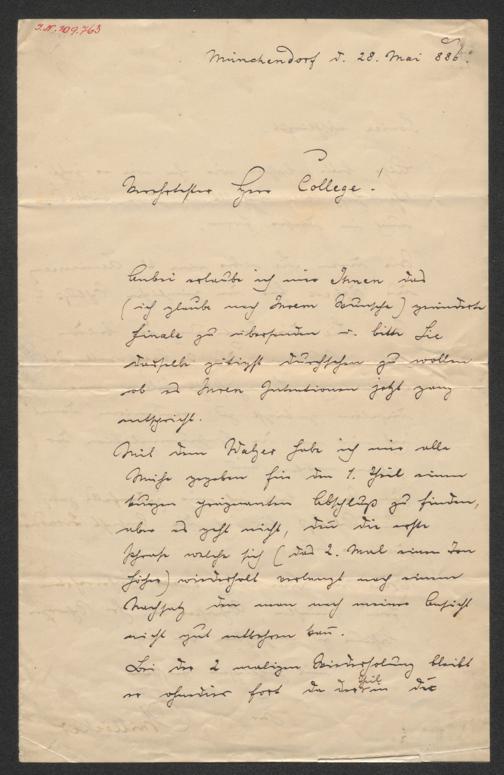 I.N. 109.763
Münchendorf d. 28. Mai 886.
Verehrtester Herr College!
Anbei erlaube ich mir Ihnen das
(ich glaube nach Ihrem Wunsche) geänderte
Finale zu übersenden u. bitte Sie
dasselbe gütigst durchsehen zu wollen
ob es Ihren Intentionen jetzt ganz
entspricht.
Mit dem Walzer habe ich mir alle
Mühe gegeben für den 1. Theil einen
kurzen prägnanten Abschluß zu finden,
aber es geht nicht, den̄ die erste
Phrase welche sich (das 2. Mal einen Ton
höher) wiederholt verlangt nach einem
Nachsatz den man nach meiner Ansicht
nicht gut entbehren kan̄.
Bei der 2 maligen Wiederholung bleibt
er ohnedies fort da der Theil in die